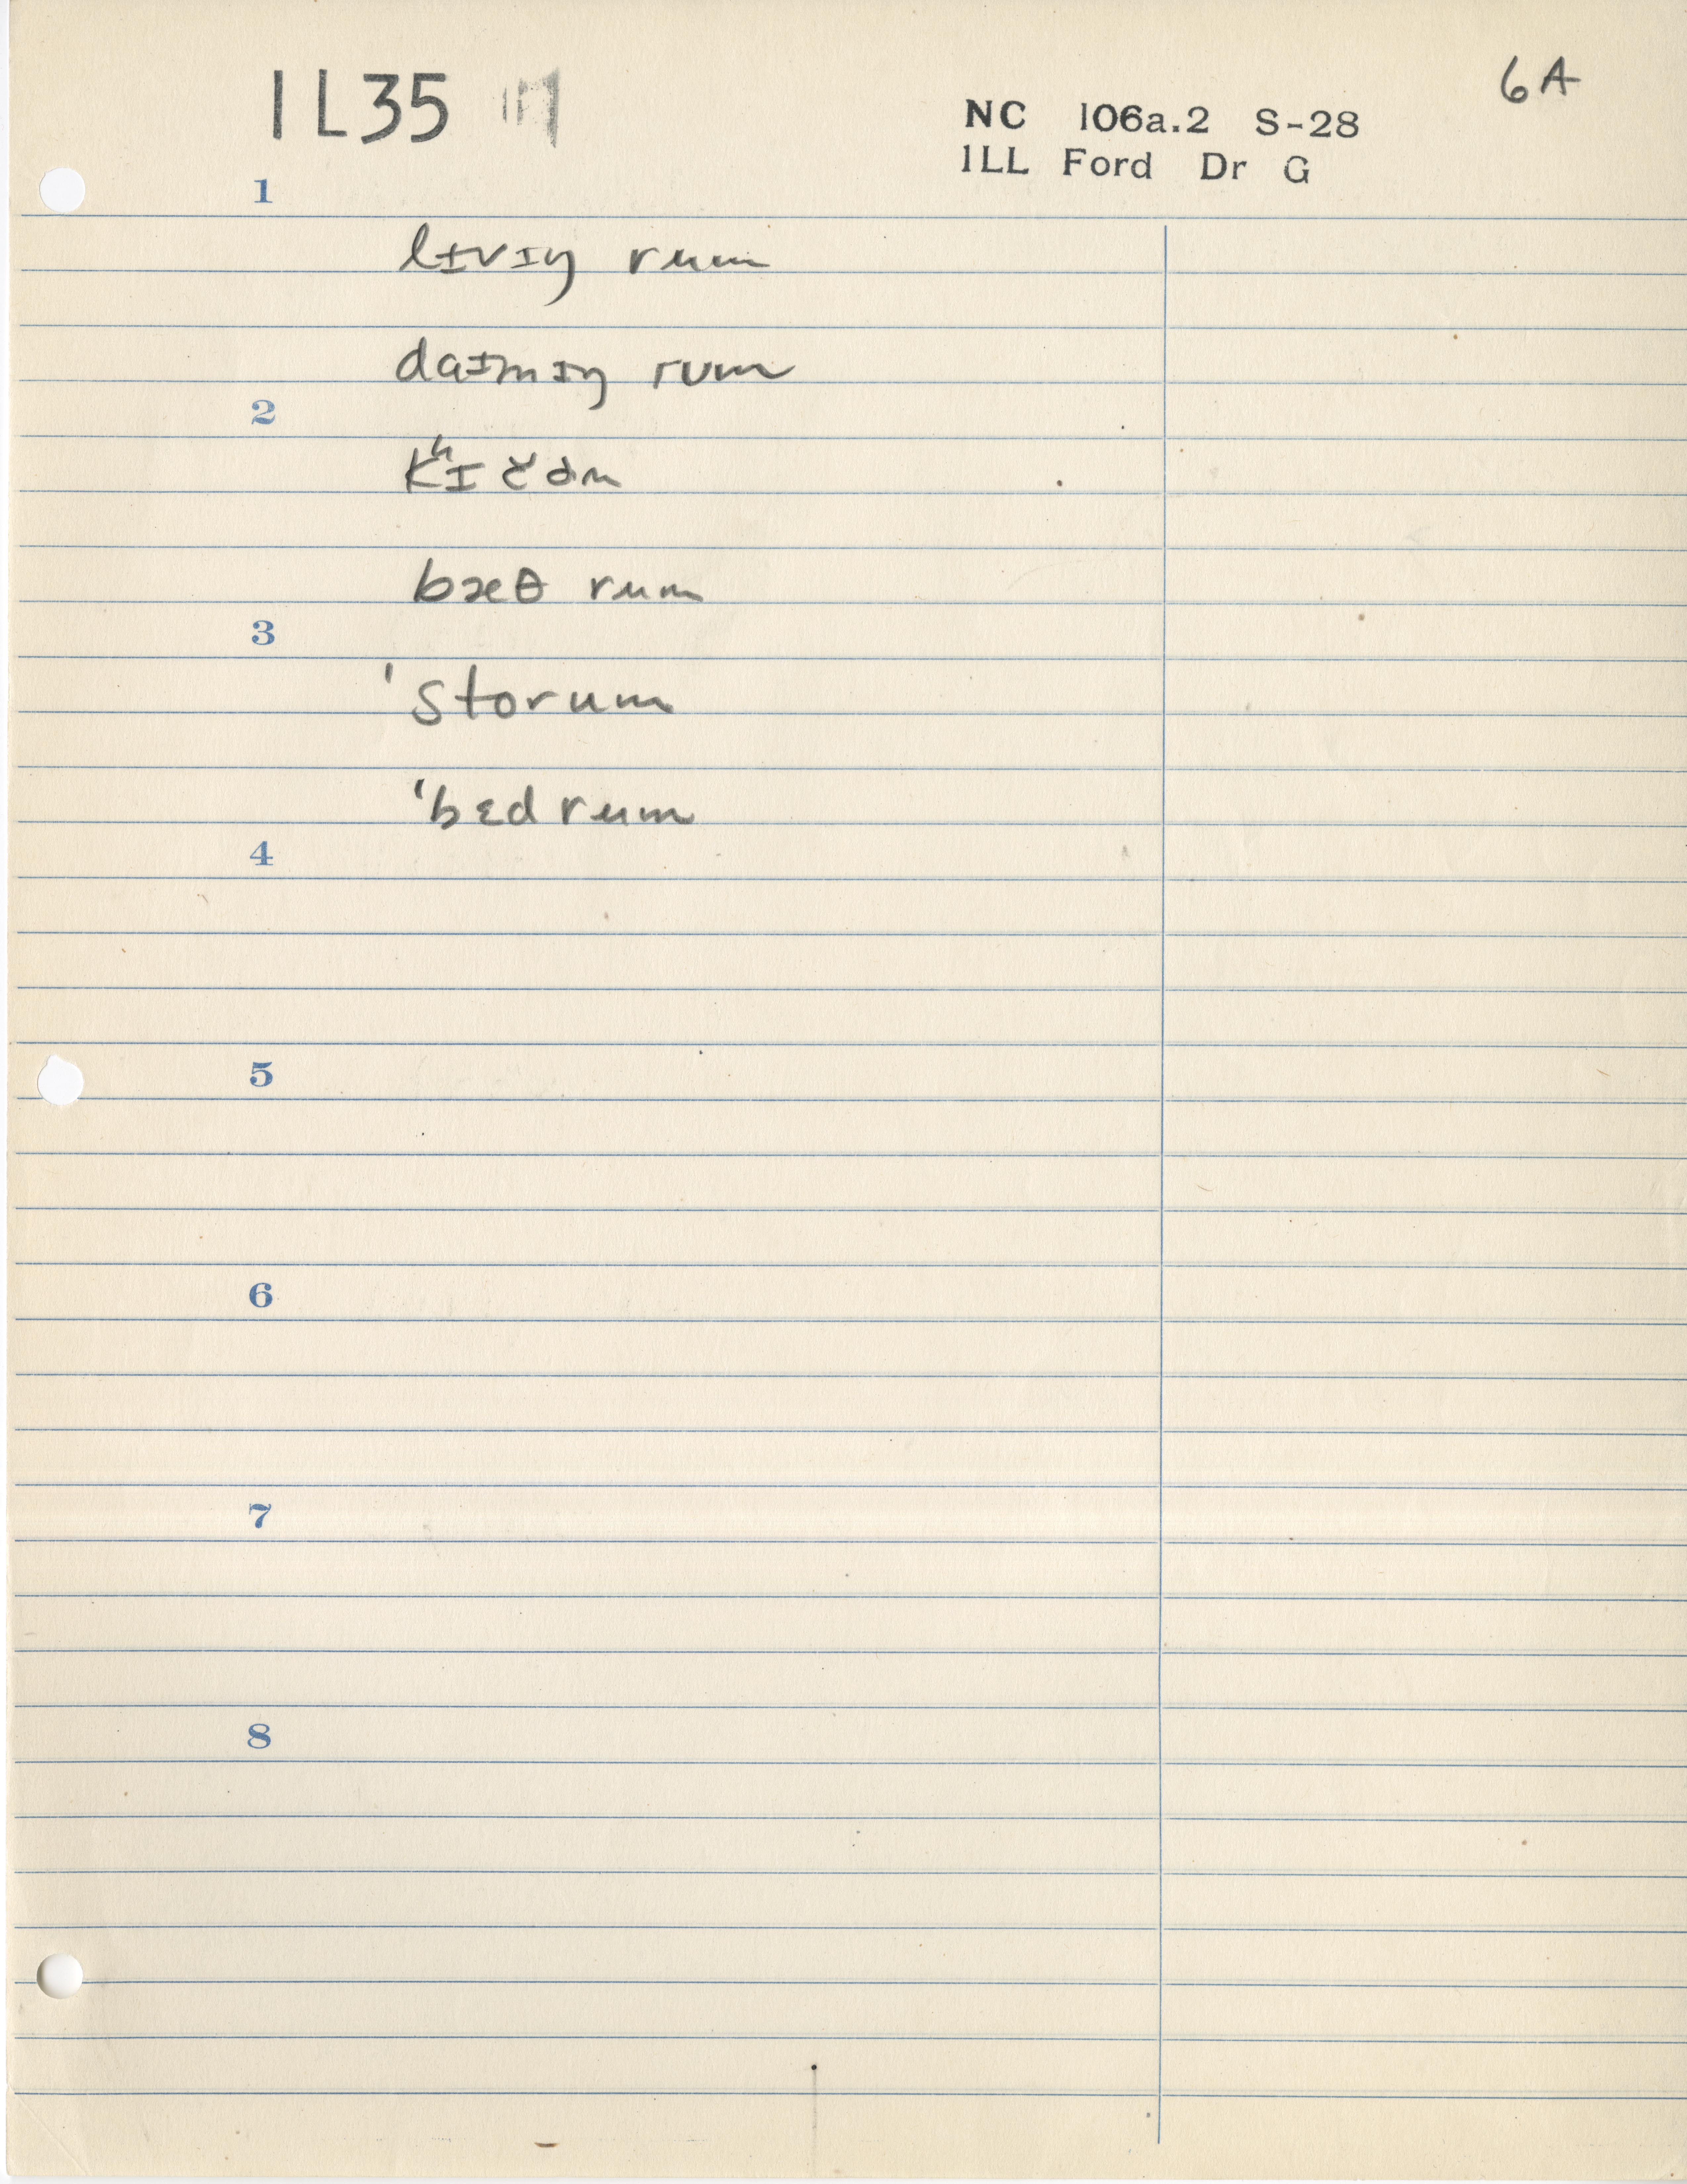 IL35
6A
NC 106a.2 S-28
ILL Ford Dr G
1
lɪvɪŋ rum
daɪnɪŋ rum
2
kʰɪčən
bæθ rum
3
ˈstorum
ˈbɛdrum
4
5
6
7
8